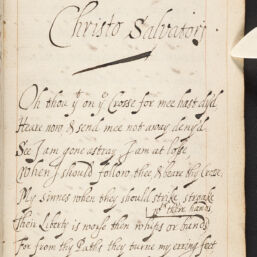 Christo Salvatori.
Oh thou yt on ye Crosse for mee hast dy'd
Heare now & send mee not away deny'd
See I am gone astray I am at losse
When I should follow thee & beare thy Crosse,
My sinnes when they should strike stroake
wth there hands
Then Liberty is worse then whips or bands
For from thy Paths they turne my erring feet